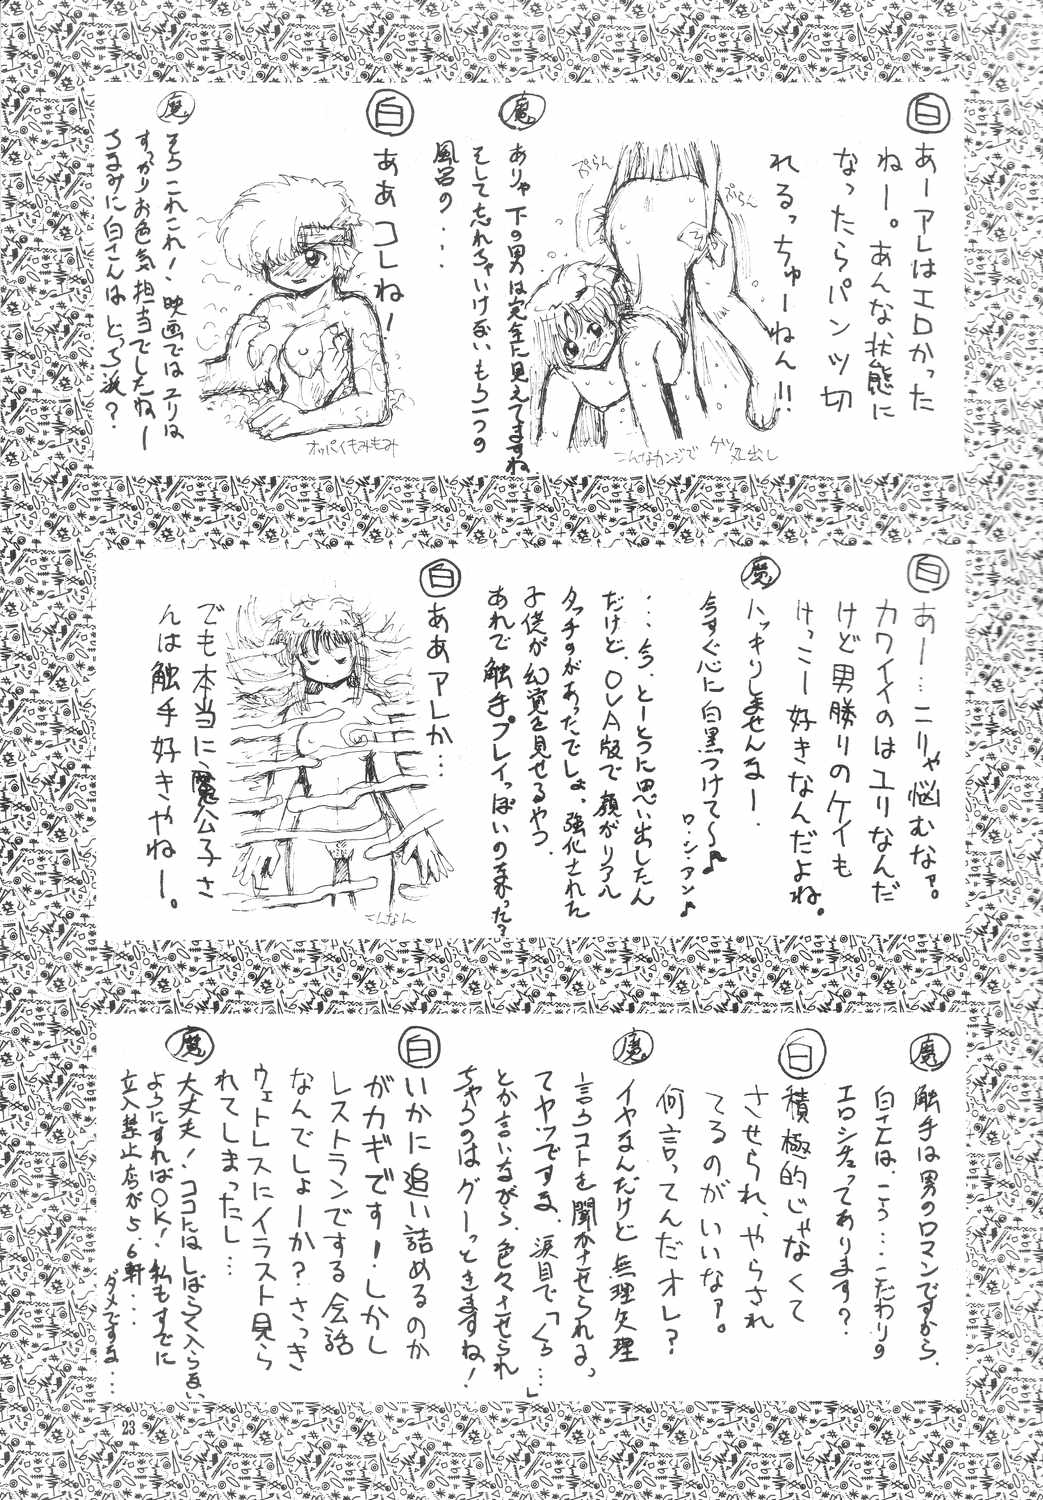 白
あーアレはエロかった
ねー。あんな状態に
なったらパンツ切
れるっちゅーねん!!
ぷらん
ぷらん
こんなカンジで
ゲツ丸出し
魔
ありゃ下の男は完全に見えてますね
そして忘れちゃいけないもう一つの
風呂の・・・
白
ああコレねー
オッパイもみもみ
魔
そうこれこれ!映画ではユリは
すっかりお色気担当でしたねー
ちなみに白さんはどっち派?
白
あー…こりゃ悩むなァ。
カワイイのはユリなんだ
けど男勝りのケイも
けっこー好きなんだよね。
魔
ハッキリしませんなー
今すぐ心に白黒つけて〜♪
ロ・シ・アン♪
・・・今、とーとつに思い出したん
だけど、OVA版で顔がリアル
タッチのがあったでしょ、強化された
子供が幻覚を見せるやつ
あれで触手プレイっぽいのあった?
白
ああアレか…
こんなん
でも本当に、魔公子さ
んは触手好きやねー。
魔
触手は男のロマンですから、
白さんは、こう…こだわりの
エロシチュってあります?
白
積極的じゃなくて
させられ、やらされ
てるのがいいなァ。
何言ってんだオレ?
魔
イヤなんだけど無理矢理
言うコトを聞かせられる、
てヤツですな、涙目で「くっ…」
とか言いながら、色々させられ
ちゃうのはグーっときますね!
白
いかに追い詰めるのか
がカギですー!しかし
レストランでする会話
なんでしょーか?さっき
ウェトレスにイラスト見ら
れてしまったし…
魔
大丈夫!ココにはしばらく入らない
ようにすればOK!私もすでに
立入禁止店が5、6軒・・・
ダメですな・・・
23